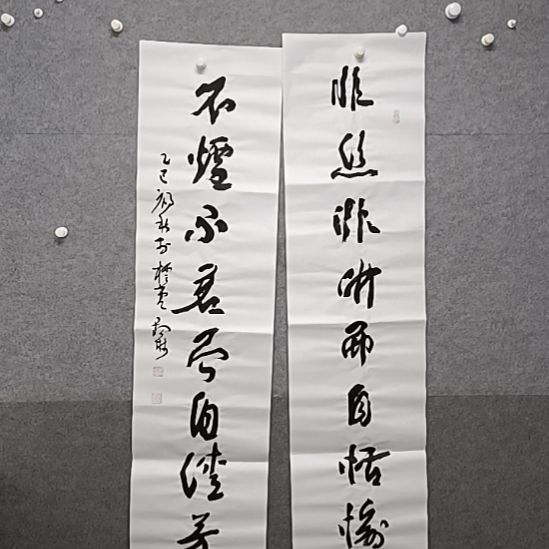 非丝非竹而自恬愉
不煙不茗而自清芬
乙巳初秋于